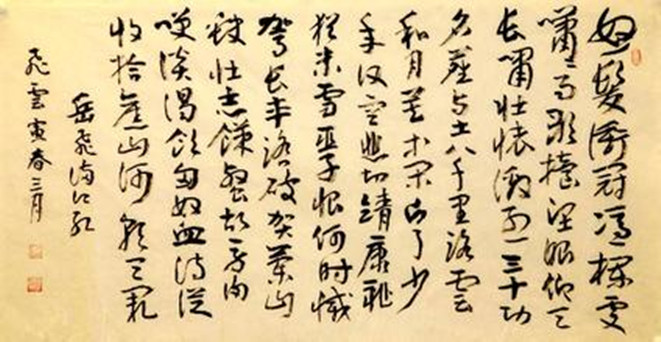 怒髮衝冠憑欄處
瀟瀟雨歇擡望眼仰天
長嘯壯懷激烈三十功
名塵與土八千里路雲
和月莫等閑白了少
年頭空悲切靖康恥
猶未雪臣子恨何時滅
駕長車踏破賀蘭山
缺壯志饑餐胡虜肉
笑談渴飲匈奴血待從
收拾舊山河朝天闕
岳飛滿江紅
飛雲寅春三月